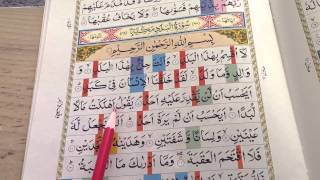 فَسَوَّىٰهَا ۝ وَلَا يَخَافُ عُقْبَٰهَا ۝
سُورَةُ الْبَلَدِ مَكِّيَّةٌ
بِسْمِ اللّٰهِ الرَّحْمٰنِ الرَّحِيْمِ
لَآ اُقْسِمُ بِهٰذَا الْبَلَدِ ۝ وَاَنْتَ حِلٌّۢ بِهٰذَا الْبَلَدِ ۝
وَوَالِدٍ وَّمَا وَلَدَ ۝ لَقَدْ خَلَقْنَا الْاِنْسَانَ فِيْ كَبَدٍ ۝
اَيَحْسَبُ اَنْ لَّنْ يَّقْدِرَ عَلَيْهِ اَحَدٌ ۝ يَقُوْلُ اَهْلَكْتُ مَالًا
لُّبَدًا ۝ اَيَحْسَبُ اَنْ لَّمْ يَرَهٗٓ اَحَدٌ ۝ اَلَمْ نَجْعَلْ لَّهٗ
عَيْنَيْنِ ۝ وَلِسَانًا وَّشَفَتَيْنِ ۝ وَهَدَيْنٰهُ النَّجْدَيْنِ ۝
فَلَا اقْتَحَمَ الْعَقَبَةَ ۝ وَمَآ اَدْرٰىكَ مَا الْعَقَبَةُ ۝